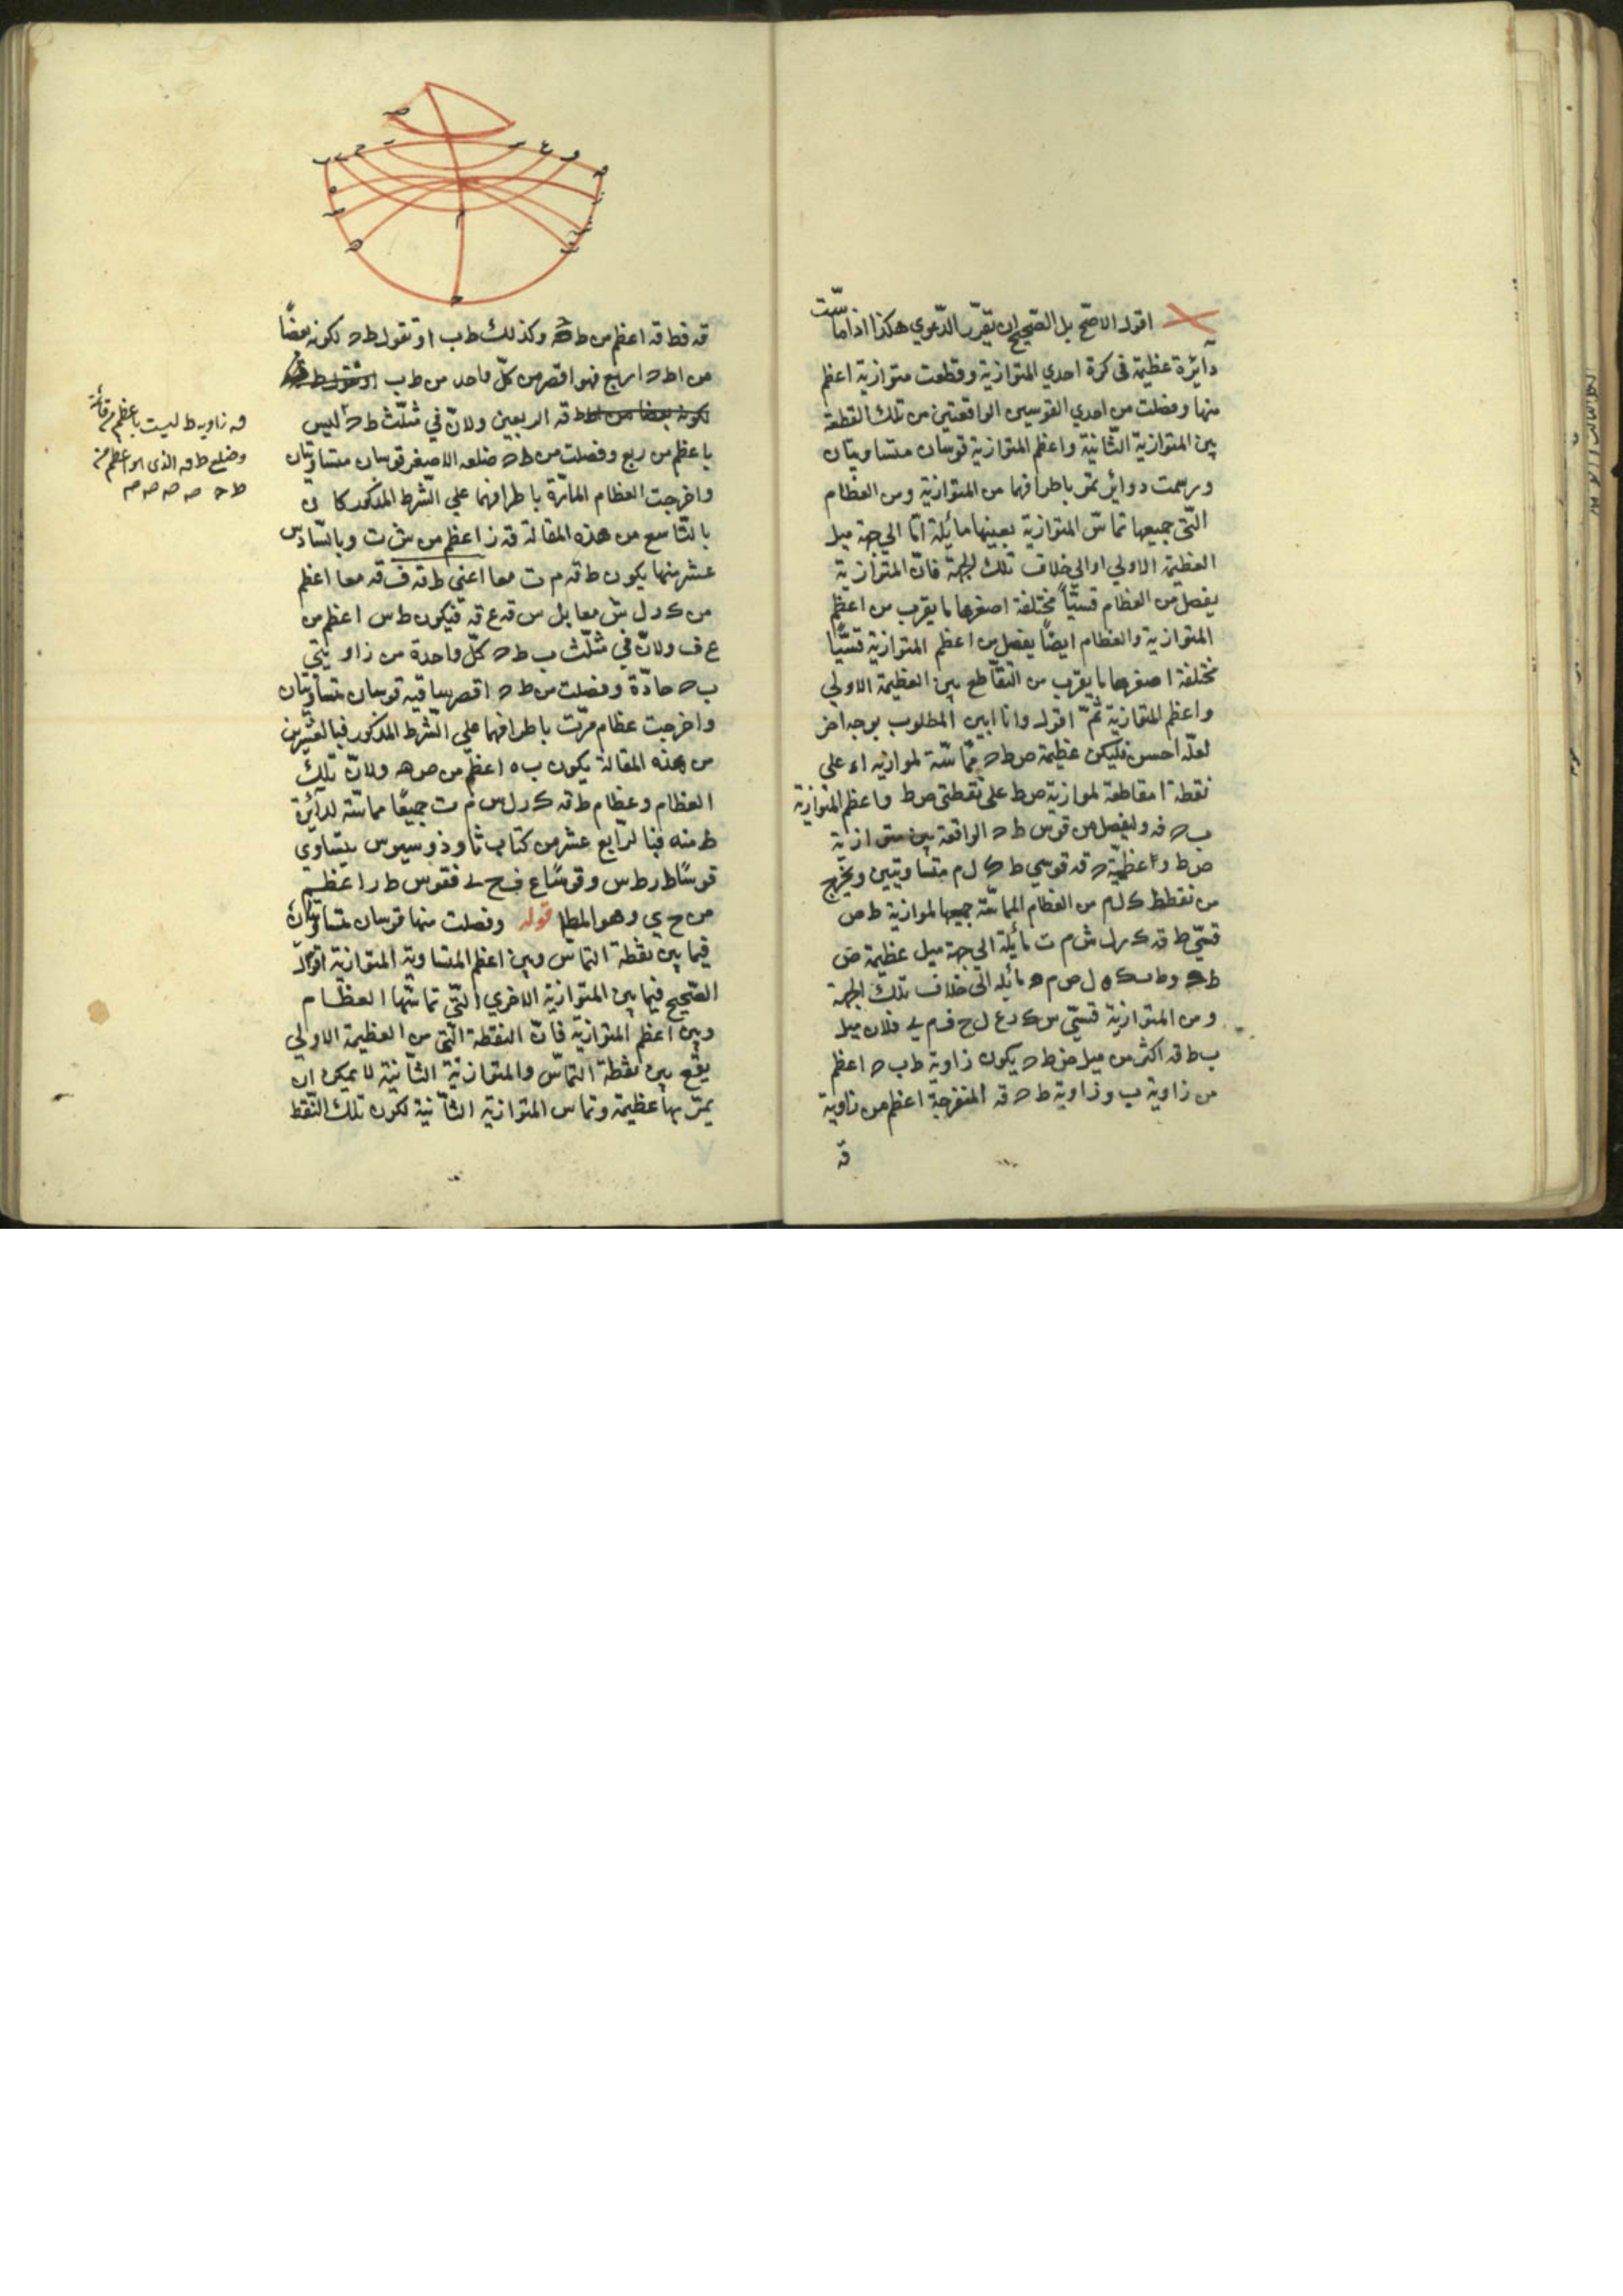 اقول الاصح بل الصحيح ان يقرر الدعوي هكذا اذا ماست
دائرة عظيمة في كرة احدي المتوازية وقطعت متوازية اعظم
منها وفصلت من احدي القوسين الواقعتين من تلك القطعة
بين المتوازية الثانية واعظم المتوازية قوسان متساويتان
ورسمت دوائر تمر باطرافهما من المتوازية ومن العظام
التي جميعها تماس المتوازية بعينها مائلة اما الي جهة ميل
العظيمة الاولي او الي خلاف تلك الجهة فان المتوازية
يفصل من العظام قسيّاً مختلفة اصغرها ما يقرب من اعظم
المتوازية والعظام ايضاً يفصل من اعظم المتوازية قسيّاً
مختلفة اصغرها ما يقرب من التقاطع بين العظيمة الاولي
واعظم المتوازية ثمّ اقول وانا ابين المطلوب بوجه اخر
لعلّه احسن فليكن عظيمة ص ط ح مماسّة لموازية اء علي
نقطة ا مقاطعة لموازية ص ط علي نقطتي ص ط واعظم المتوازية
ب ح قه وليفصل من قوس ط ح الواقعة بين متوازية
ص ط وعظيمة ح قه قوسي ط ك ل م متساويتين ويخرج
من نقط ط ك ل م من العظام المماسّة جميعها لموازية ط ص
قسيّ ط قه ك ر ل ش م ت مائلة الي جهة ميل عظيمة ص
ط ح وط ب ك ه ل ص م ه مائلة الي خلاف تلك الجهة
ومن المتوازية قسيّ س ك ع ل ح ف م ي فلان ميل
ب ط قه اكثر من ميل ص ط ح يكون زاوية ط ب ح اعظم
من زاوية ب وزاوية ط ح قه المنفرجة اعظم من زاوية
قه
قه فط قه اعظم من ط ح وكذلك ط ب او تقول ط ح لكونه بعضاً
من ا ط ح اربع فهو اقصر من كلّ واحد من ط ب
قه الربعين ولانّ في مثلّث ط ح ليس
باعظم من ربع وفصلت من ط ح ضلعه الاصغر قوسان متساويتان
واخرجت العظام المارّة باطرافهما علي الشّرط المذكور كان
بالتّاسع من هذه المقالة قه ز اعظم من ش ت وبالسّادس
عشر منها يكون ط قه م ت معا اعني ط قه ف قه معا اعظم
من ك ر ل ش معا بل س قه ع قه فيكون ط س اعظم من
ع ف ولانّ في مثلّث ب ط ح كلّ واحدة من زاويتي
ب ح حادّة وفصلت من ط ح اقصر ساقيه قوسان متساويتان
واخرجت عظام مرّت باطرافهما علي الشّرط المذكور فبالعشرين
من هذه المقالة يكون ب ه اعظم من ص ه ولانّ تلك
العظام وعظام ط قه ك ر ل ش م ت جميعًا مماسّة لدائرة
ط منه فبالرّابع عشر من كتاب ثاوذوسيوس يتساوي
قوسًا ط ر ط س وقوسًا ع ف ح ي فقوس ط ر اعظم
من ح ي وهو المط قوله وفصلت منها قوسان متساويتان
فيما بين نقطة التماس وبين اعظم المتساوية المتوازية اقول
الصّحيح فيما بين المتوازية الاخري التّي تماسّها العظام
وبين اعظم المتوازية فانّ النقطة التّي من العظيمة الاولي
يقع بين نقطة التماسّ والمتوازية الثّانية لا يمكن ان
يمرّ بها عظيمة وتماس المتوازية الثّانية لكون تلك النّقط
قه زاوية ط ليست باعظم من قائمة
وضلع ط قه الذي هو اعظم من
ط ح